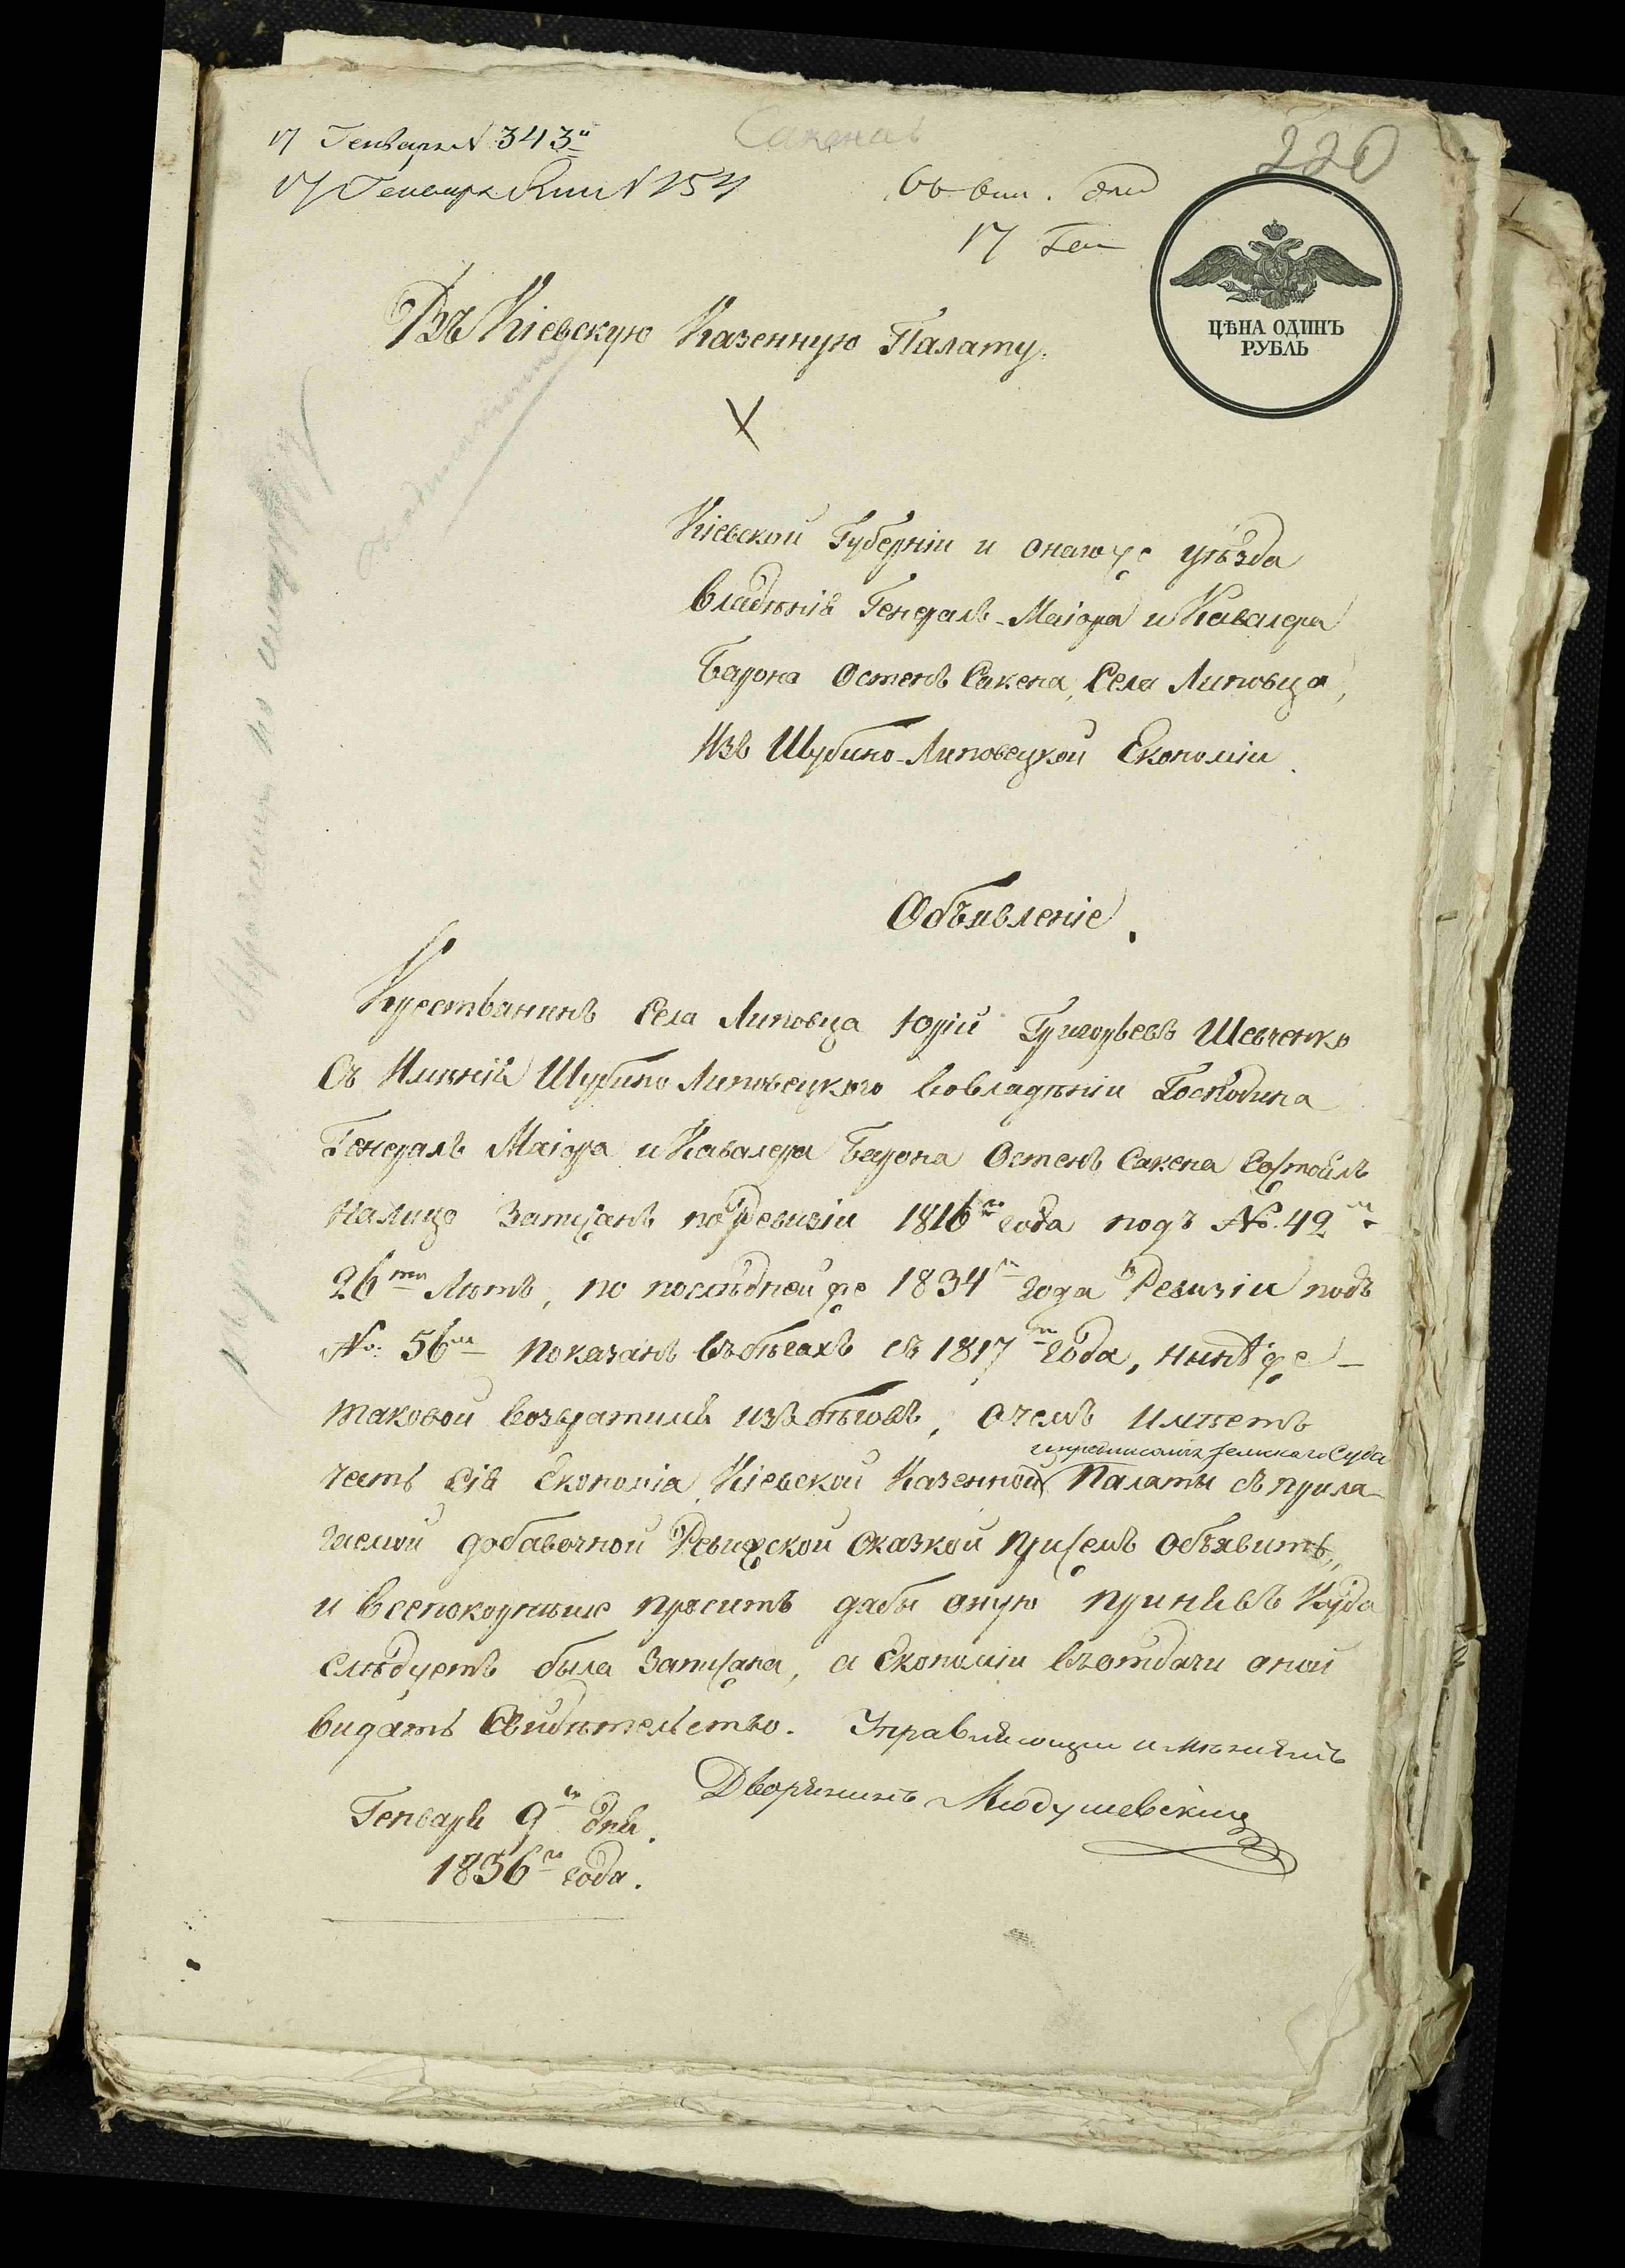 17 Генваря N 343й
Сакенав
220
17 Генваря N 154
17 Ген
ЦѢНА ОДИНЪ
РУБЛЬ
Въ Кіевскую Казенную Палату.
Кіевской Губерніи и оного же уѣзда
владѣнія Генералъ-Маіора и Кавалера
Барона Остенъ Сакена, Села Липовца,
Изъ Шубино-Липовецкой Економіи.
Объявленіе.
Крестьянинъ Села Липовца Юрій Григорьевъ Шевченко
Съ Имѣнія Шубино Липовецкого вовладѣніи Господина
Генералъ Маіора и Кавалера Барона Остенъ Сакена Состоялъ
налицо Записанъ по Ревизіи 1816го года подъ № 42м
26ти Лѣтъ, по послѣдней же 1834го года Ревизіи подъ
№ 56м показанъ въбѣгахъ съ 1817го года, нынѣ же
таковой возвратился изъ бѣговъ, очемъ имѣетъ
честь Сія Економія Кіевской Казенной Палаты съ прила-
гаемой добавочной Ревизской Сказкой присемъ объявить,
и всепокорнѣйше проситъ дабы оную принявъ Куда
слѣдуетъ была Записана, а Економіи въотдачи оной
видать Свидѣтельство. Управляющій имѣніемъ
Дворянинъ
Генваря 9го дня.
1836го года.